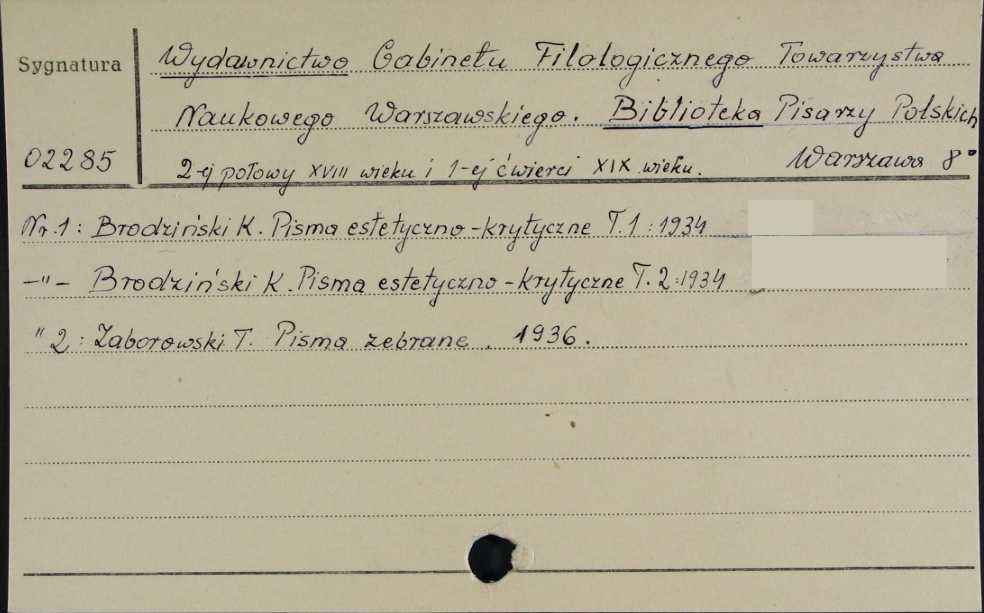 Sygnatura
Wydawnictwo Gabinetu Filologicznego Towarzystwa
Naukowego Warszawskiego. Biblioteka Pisarzy Polskich
02285
2-ej połowy XVIII wieku i 1-ej ćwierci XIX wieku. Warszawa 8°
Nr. 1 : Brodziński K. Pisma estetyczno-krytyczne T.1 : 1934
-"- Brodziński K. Pisma estetyczno-krytyczne T.2 : 1934
" 2 : Zaborowski T. Pisma zebrane . 1936.